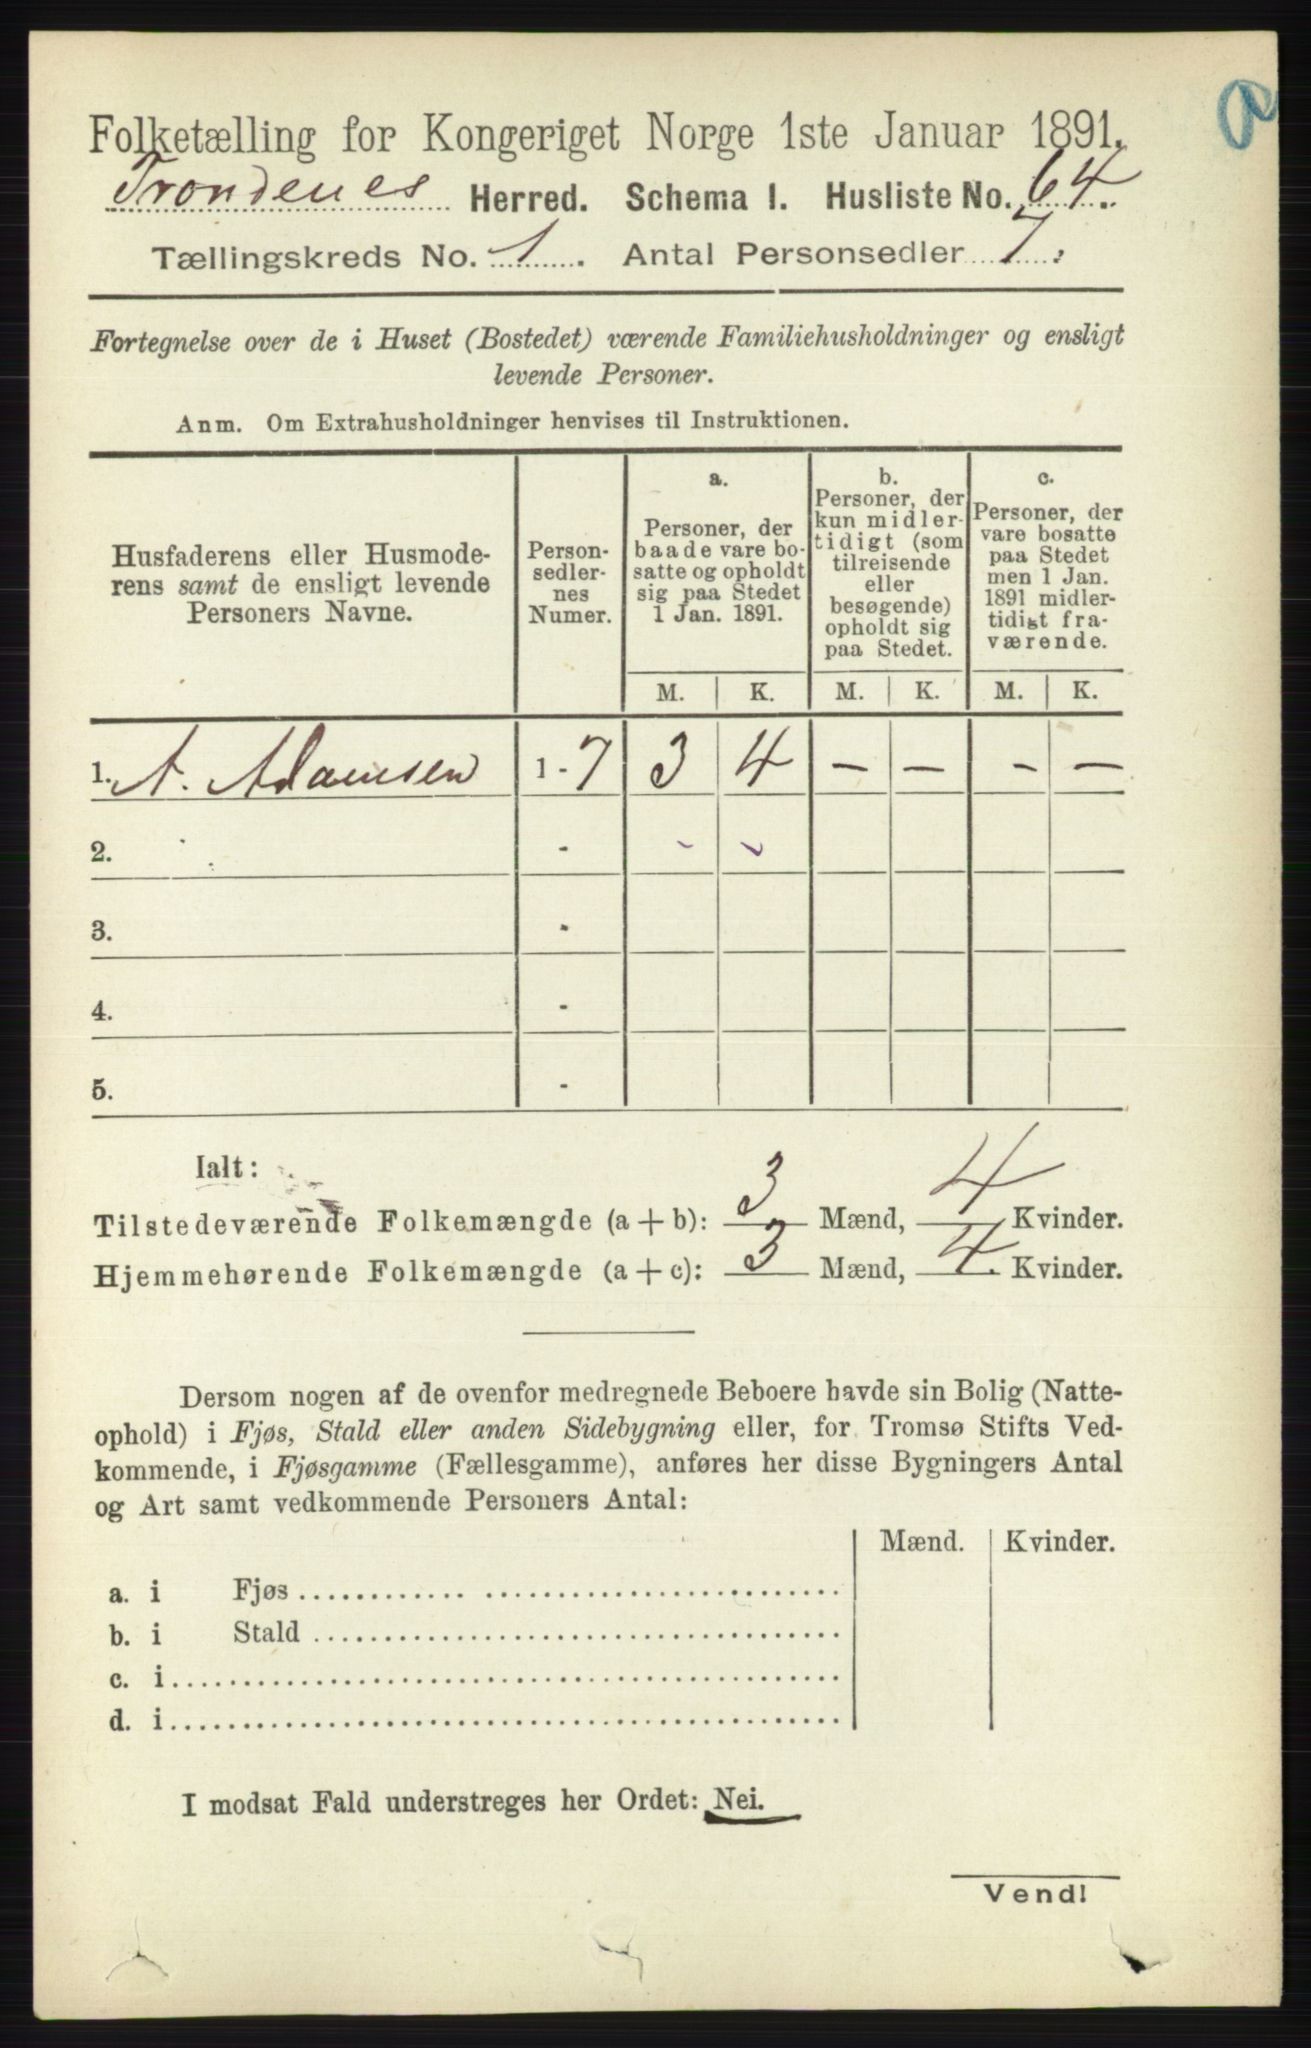 Folketælling for Kongeriget Norge 1ste Januar 1891.
Trondenes Herred. Schema I. Husliste No. 64.
Tællingskreds No. 1. Antal Personsedler 7.
Fortegnelse over de i Huset (Bostedet) værende Familiehusholdninger og ensligt
levende Personer.
Anm. Om Extrahusholdninger henvises til Instruktionen.
Husfaderens eller Husmode-
rens samt de ensligt levende
Personers Navne.
Person-
sedler-
nes
Numer.
a.
Personer, der
baade vare bo-
satte og opholdt
sig paa Stedet
1 Jan. 1891.
b.
Personer, der
kun midler-
tidigt (som
tilreisende
eller
besøgende)
opholdt sig
paa Stedet.
c.
Personer, der
vare bosatte
paa Stedet
men 1 Jan.
1891 midler-
tidigt fra-
værende.
M. K. M. K. M. K.
1. A. Adamsen 1 - 7 3 4 — — — —
2. -
3. -
4. -
5. -
Ialt:
Tilstedeværende Folkemængde (a + b): 3 Mænd, 4 Kvinder.
Hjemmehørende Folkemængde (a + c): 3 Mænd, 4. Kvinder.
Dersom nogen af de ovenfor medregnede Beboere havde sin Bolig (Natte-
ophold) i Fjøs, Stald eller anden Sidebygning eller, for Tromsø Stifts Ved-
kommende, i Fjøsgamme (Fællesgamme), anføres her disse Bygningers Antal
og Art samt vedkommende Personers Antal:
Mænd. Kvinder.
a. i Fjøs
b. i Stald
c. i
d. i
I modsat Fald understreges her Ordet: Nei.
Vend!